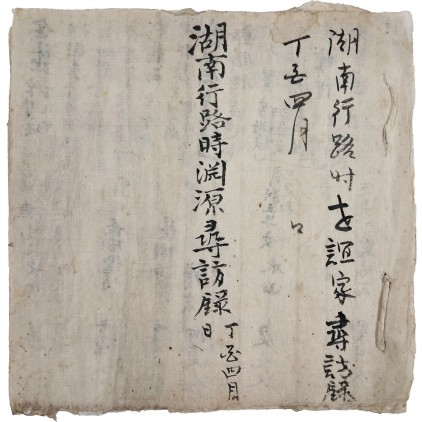 湖南行路時ち誼家尋訪錄
丁至四月 日
湖南行路時淵源尋訪錄
丁至四月 日